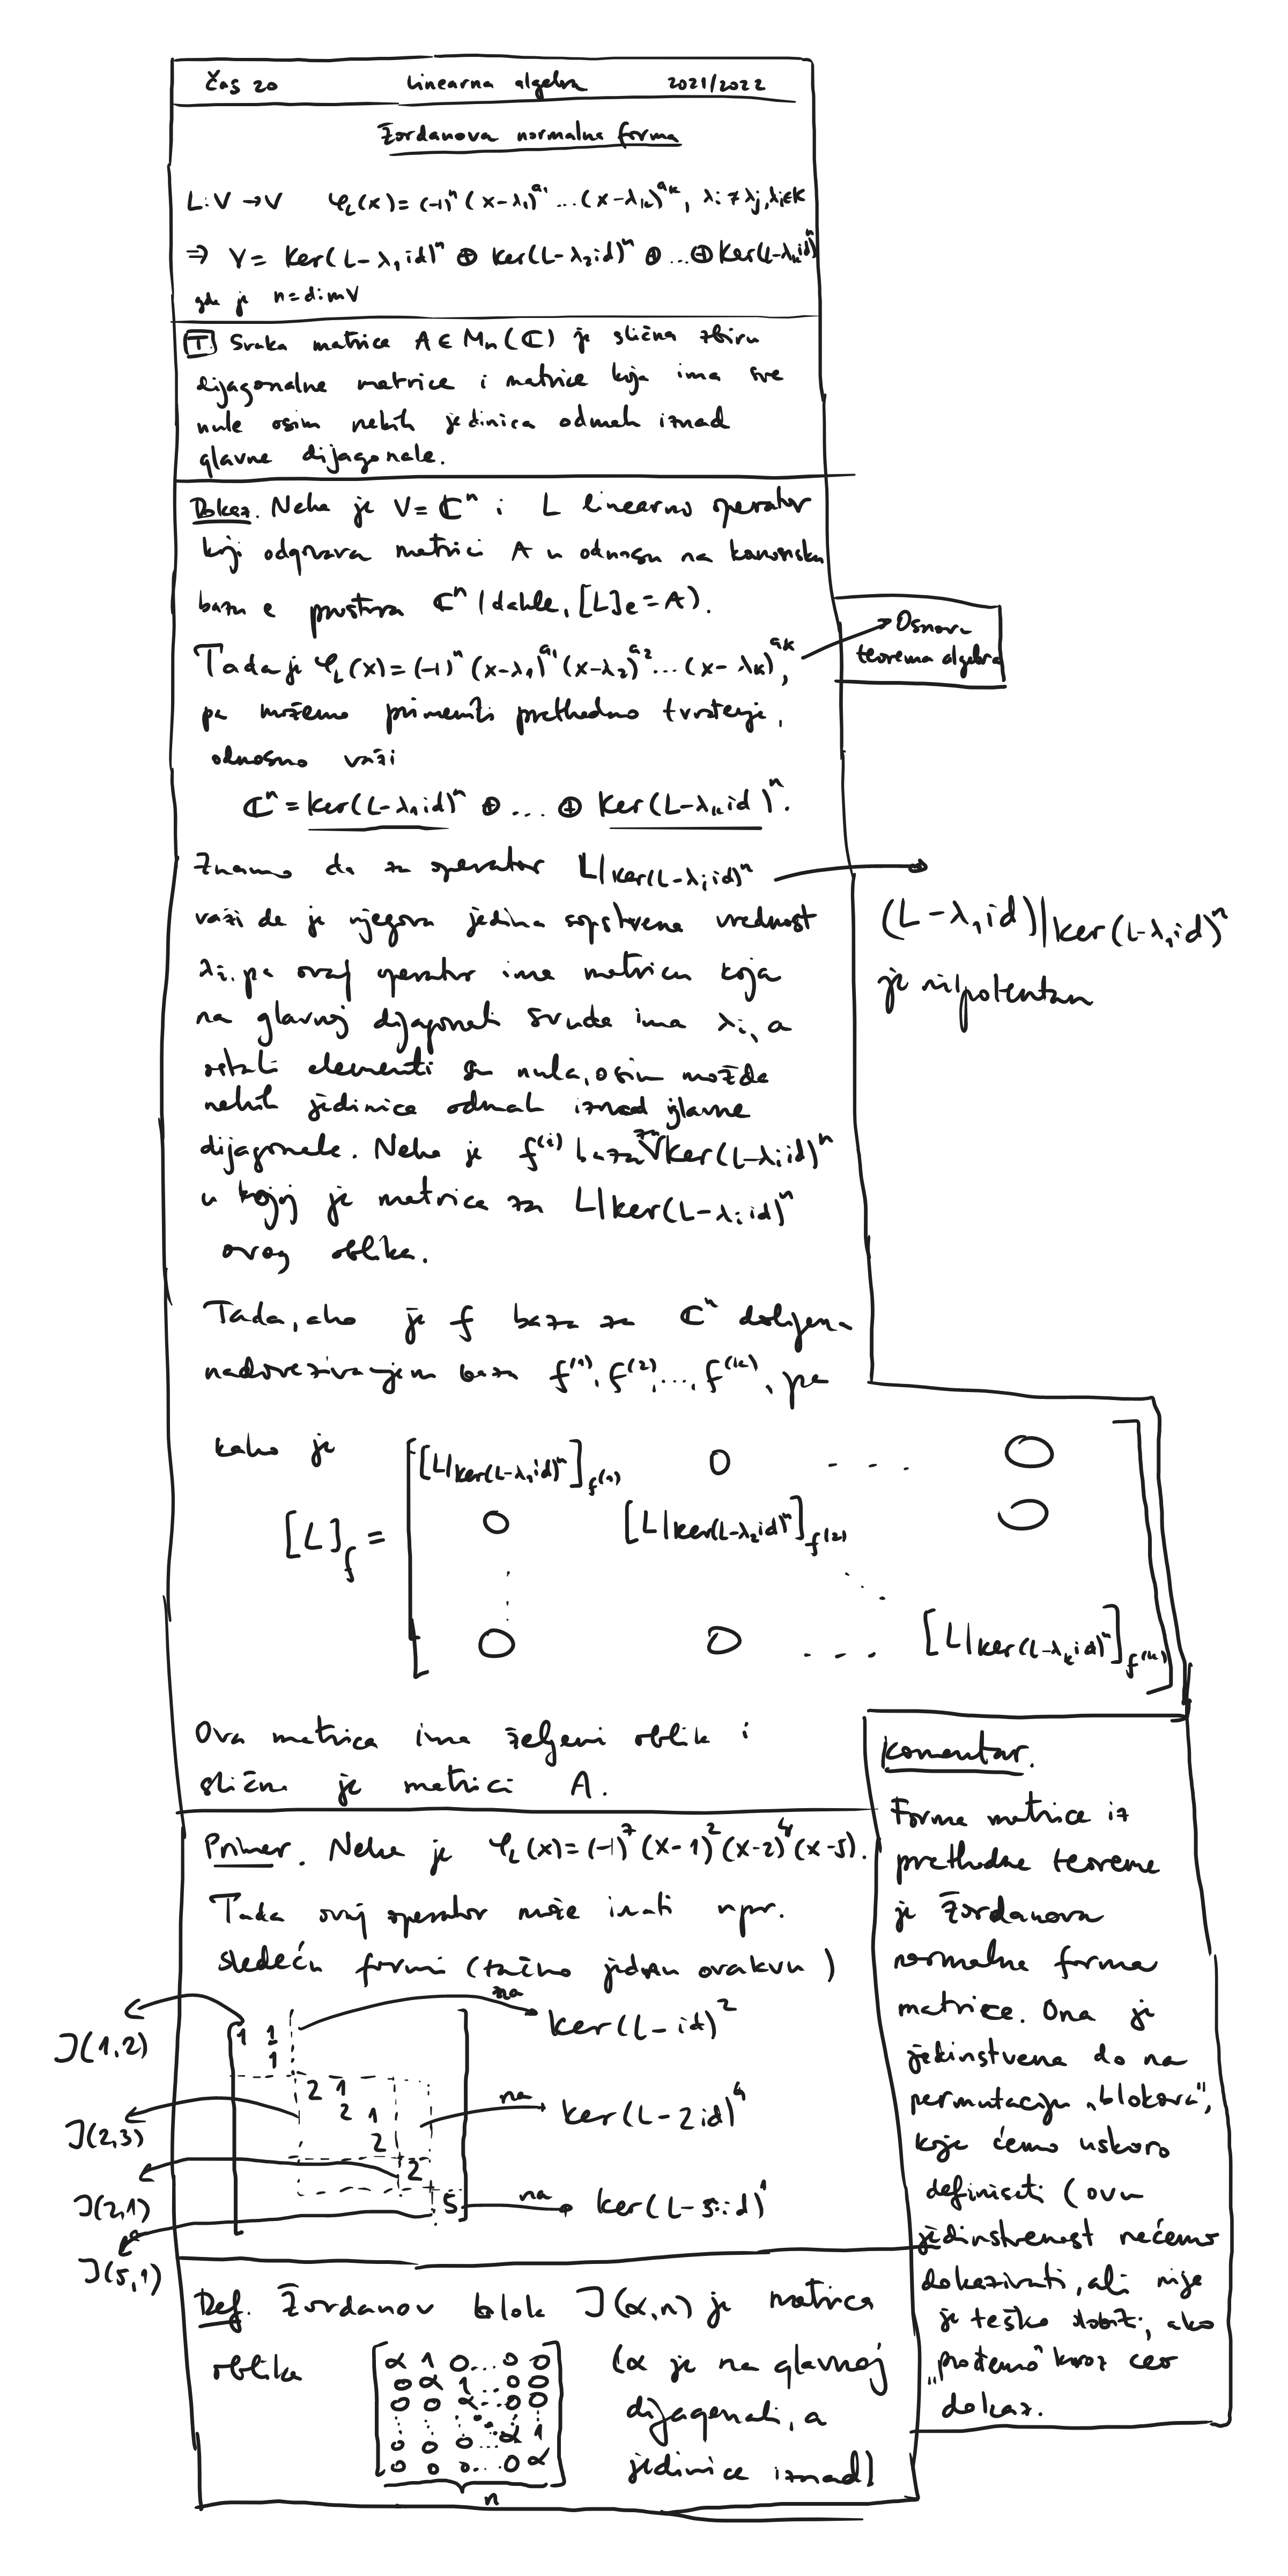 Čas 20 Linearna algebra 2021/2022
Žordanova normalna forma
L:V→V φ_L(x)=(-1)^n (x-λ₁)^{a₁}...(x-λ_k)^{a_k}, λᵢ≠λⱼ, λᵢ∈K
⇒ V = Ker(L-λ₁id)^n ⊕ Ker(L-λ₂id)^n ⊕ ... ⊕ Ker(L-λ_k id)^n
gde je n=dimV
T. Svaka matrica A∈M_n(ℂ) je slična zbiru
dijagonalne matrice i matrice koja ima sve
nule osim nekih jedinica odmah iznad
glavne dijagonale.
Dokaz. Neka je V=ℂ^n i L linearno operator
koji odgovara matrici A u odnosu na kanonsku
bazu e prostora ℂ^n (dakle, [L]_e=A).
Tada je φ_L(x)=(-1)^n (x-λ₁)^{a₁}(x-λ₂)^{a₂}...(x-λ_k)^{a_k},
→ Osnovna
teorema algebre
pa možemo primeniti prethodno tvrđenje,
odnosno važi
ℂ^n = Ker(L-λ₁id)^n ⊕ ... ⊕ Ker(L-λ_k id)^n.
Znamo da za operator L|Ker(L-λᵢid)^n →
(L-λ₁id)|Ker(L-λ₁id)^n
je nilpotentan
važi da je njegova jedina sopstvena vrednost
λᵢ, pa ovaj operator ima matricu koja
na glavnoj dijagonali svuda ima λᵢ, a
ostali elementi su nula, osim možda
nekih jedinica odmah iznad glavne
dijagonale. Neka je f^(i) baza za Ker(L-λᵢid)^n
u kojoj je matrica za L|Ker(L-λᵢid)^n
ovog oblika.
Tada, ako je f baza za ℂ^n dobijena
nadovezivanjem baza f^(1), f^(2), ..., f^(k), pa
kako je
[L|Ker(L-λ₁id)^n]_f^(1) 0 ... 0
[L]_f = 0 [L|Ker(L-λ₂id)^n]_f^(2) 0
0 0 ... [L|Ker(L-λ_k id)^n]_f^(k)
Ova matrica ima željeni oblik i
slična je matrici A.
Komentar.
Forma matrice iz
prethodne teoreme
je Žordanova
normalna forma
matrice. Ona je
jedinstvena do na
permutaciju „blokova",
koje ćemo uskoro
definisati (ovu
jedinstvenost nećemo
dokazivati, ali nije
je teško dobiti, ako
„prođemo" kroz ceo
dokaz.
Primer. Neka je φ_L(x)=(-1)^7 (x-1)^2 (x-2)^4 (x-5).
Tada ovaj operator može imati npr.
sledeću formu (tačno jednu ovakvu)
J(1,2) 1 1 na → Ker(L-id)^2
1
2 1
J(2,3) 2 1 na → Ker(L-2id)^4
2
J(2,1) 2
5 na → Ker(L-5id)^1
J(5,1)
Def. Žordanov blok J(α,n) je matrica
oblika
α 1 0 ... 0 0
0 α 1 ... 0 0
0 0 α ... 0 0
0 0 0 ... α 1
0 0 0 ... 0 α
n
(α je na glavnoj
dijagonali, a
jedinice iznad)